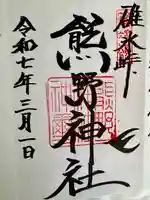 碓氷峠
熊野神社
令和七年三月一日